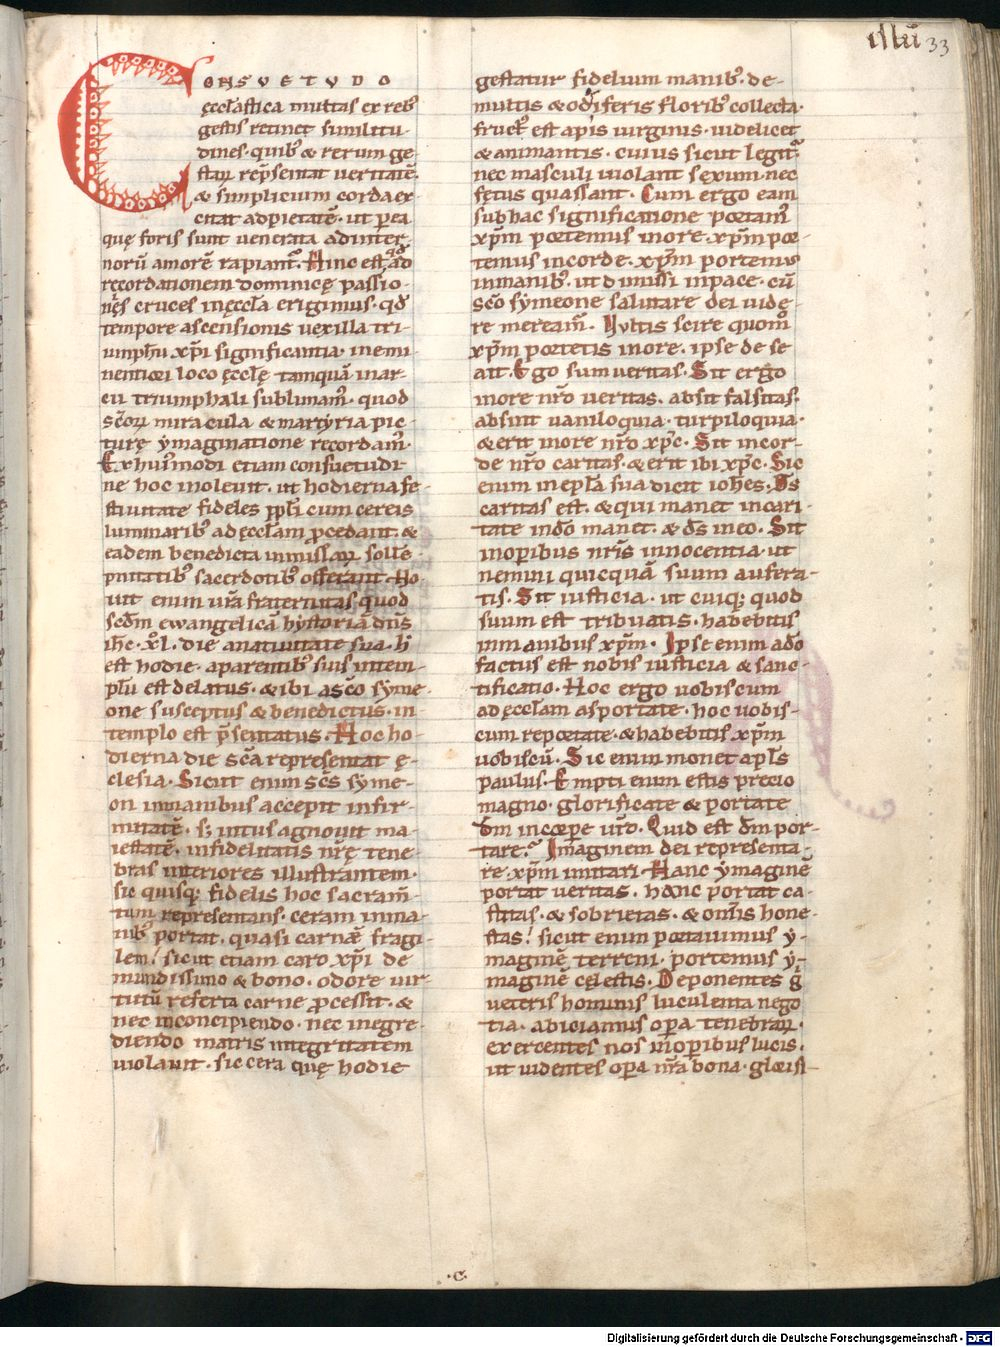 CONSVETVDO
ęccłastica multas ex reb᷒
gestis retinet similitu-
dines. quib᷒ & rerum ge-
staꝝ rep̄sentat veritatē.
& simplicium corda ex-
citat ad pietatē. ut p ea
quę foris sunt venerata ad inter-
norū amorē rapiant᷒. Hinc est qđ ad
recordationem dominicę passio-
nis cruces in ęccła erigimus. qđ
tempore ascensionis uexilla tri-
umphū xp̄i significantia. in emi-
nentiori loco ęccłę tamquā in ar-
cu triumphali sublimam᷒. quod
sc̄oꝝ miracula & martyria pic-
turę ymaginatione recordam᷒.
Ex hui᷒modi etiam consuetudi-
ne hoc inoleuit. ut hodierna fe-
stiuitate fideles pp̄łi cum cereis
luminarib᷒ ad ęccłam p̄cedant. &
eadem benedicta in missaꝝ solle-
pnitatib᷒ sacerdotib᷒ offerant. No-
uit enim ur̄a fraternitas quod
scd̄m ewangelicā hystoriā dn̄s
ih̄c. xl. die a natiuitate sua. ħ
est hodie. a parentib᷒ suis in tem-
płu est delatus. & ibi a sc̄o syme-
one susceptus & benedictus. in
templo est p̄sentatus. Hoc ho-
dierna die sc̄a representat ę-
clesia. Sicut enim sc̄s syme-
on in manibus accepit infir-
mitatē. s; intus agnouit ma-
iestatē. infidelitatis nr̄ę tene-
bras interiores illustrantem.
sic quisq; fidelis hoc sacram̄-
tum representans. ceram in ma-
nib᷒ portat. quasi carnē fragi-
lem! sicut etiam caro xp̄i de
mundissimo & bono. odore uir-
tutū referta carne p̄cessit. &
nec in concipiendo. nec in egre-
diendo matris integritatem
uiolauit. sic cera quę hodie
gestatur fidelium manib᷒. de-
multis & odiferis florib᷒ collecta.
fruct᷒ est apis uirginis. uidelicet
& animantis. cuius sicut legit᷒.
nec masculi uiolant sexum. nec
fętus quassant. Cum ergo eam
sub hac significatione portam᷒
xp̄m portemus in ore. xp̄m por-
temus in corde. xp̄m portemus
in manib᷒. ut dimissi in pace. cū
sc̄o symeone salutare dei uide-
re meream᷒. Vultis scire quom̄
xp̄m portetis in ore. ipse de se
ait. Ego sum ueritas. Sit ergo
in ore nr̄o veritas. absit falsitas.
absint uaniloquia. turpiloquia.
& erit in ore nr̄o xp̄c. Sit in cor-
de nr̄o caritas. & erit ibi xp̄c. Sic
enim in epła sua dicit ioh̄es. D̄s
caritas est. & qui manet in cari-
tate in dō manet. & ds̄ in eo. Sit
in operibus nr̄is innocentia. ut
nemini quicquā suum aufera-
tis. Sit iusticia. ut cuiq; quod
suum est tribuatis. habebitis
in manibus xp̄m. Ipse enim a do
factus est nobis iusticia & sanc-
tificatio. Hoc ergo uobiscum
ad ęccłam asportate. hoc uobis-
cum reportate. & habebitis xp̄m
uobiscū. Sic enim monet ap̄łs
paulus. Empti enim estis precio
magno. glorificate & portate
dm̄ in corpe ur̄o. Quid est dm̄ por-
tare? Imaginem dei representa-
re. xp̄m imitari. Hanc ymaginē
portat veritas. hanc portat ca-
stitas. & sobrietas. & om̄is hone-
stas! sicut enim portauimus y-
maginē terreni. portemus y-
maginē celestis. Deponentes g
ueteris hominis luculenta nego-
tia. abiciamus opa tenebraꝝ.
exercentes nos in operibus lucis.
ut uidentes opa nr̄a bona. glorifi-
33
.c.
Digitalisierung gefördert durch die Deutsche Forschungsgemeinschaft - DFG